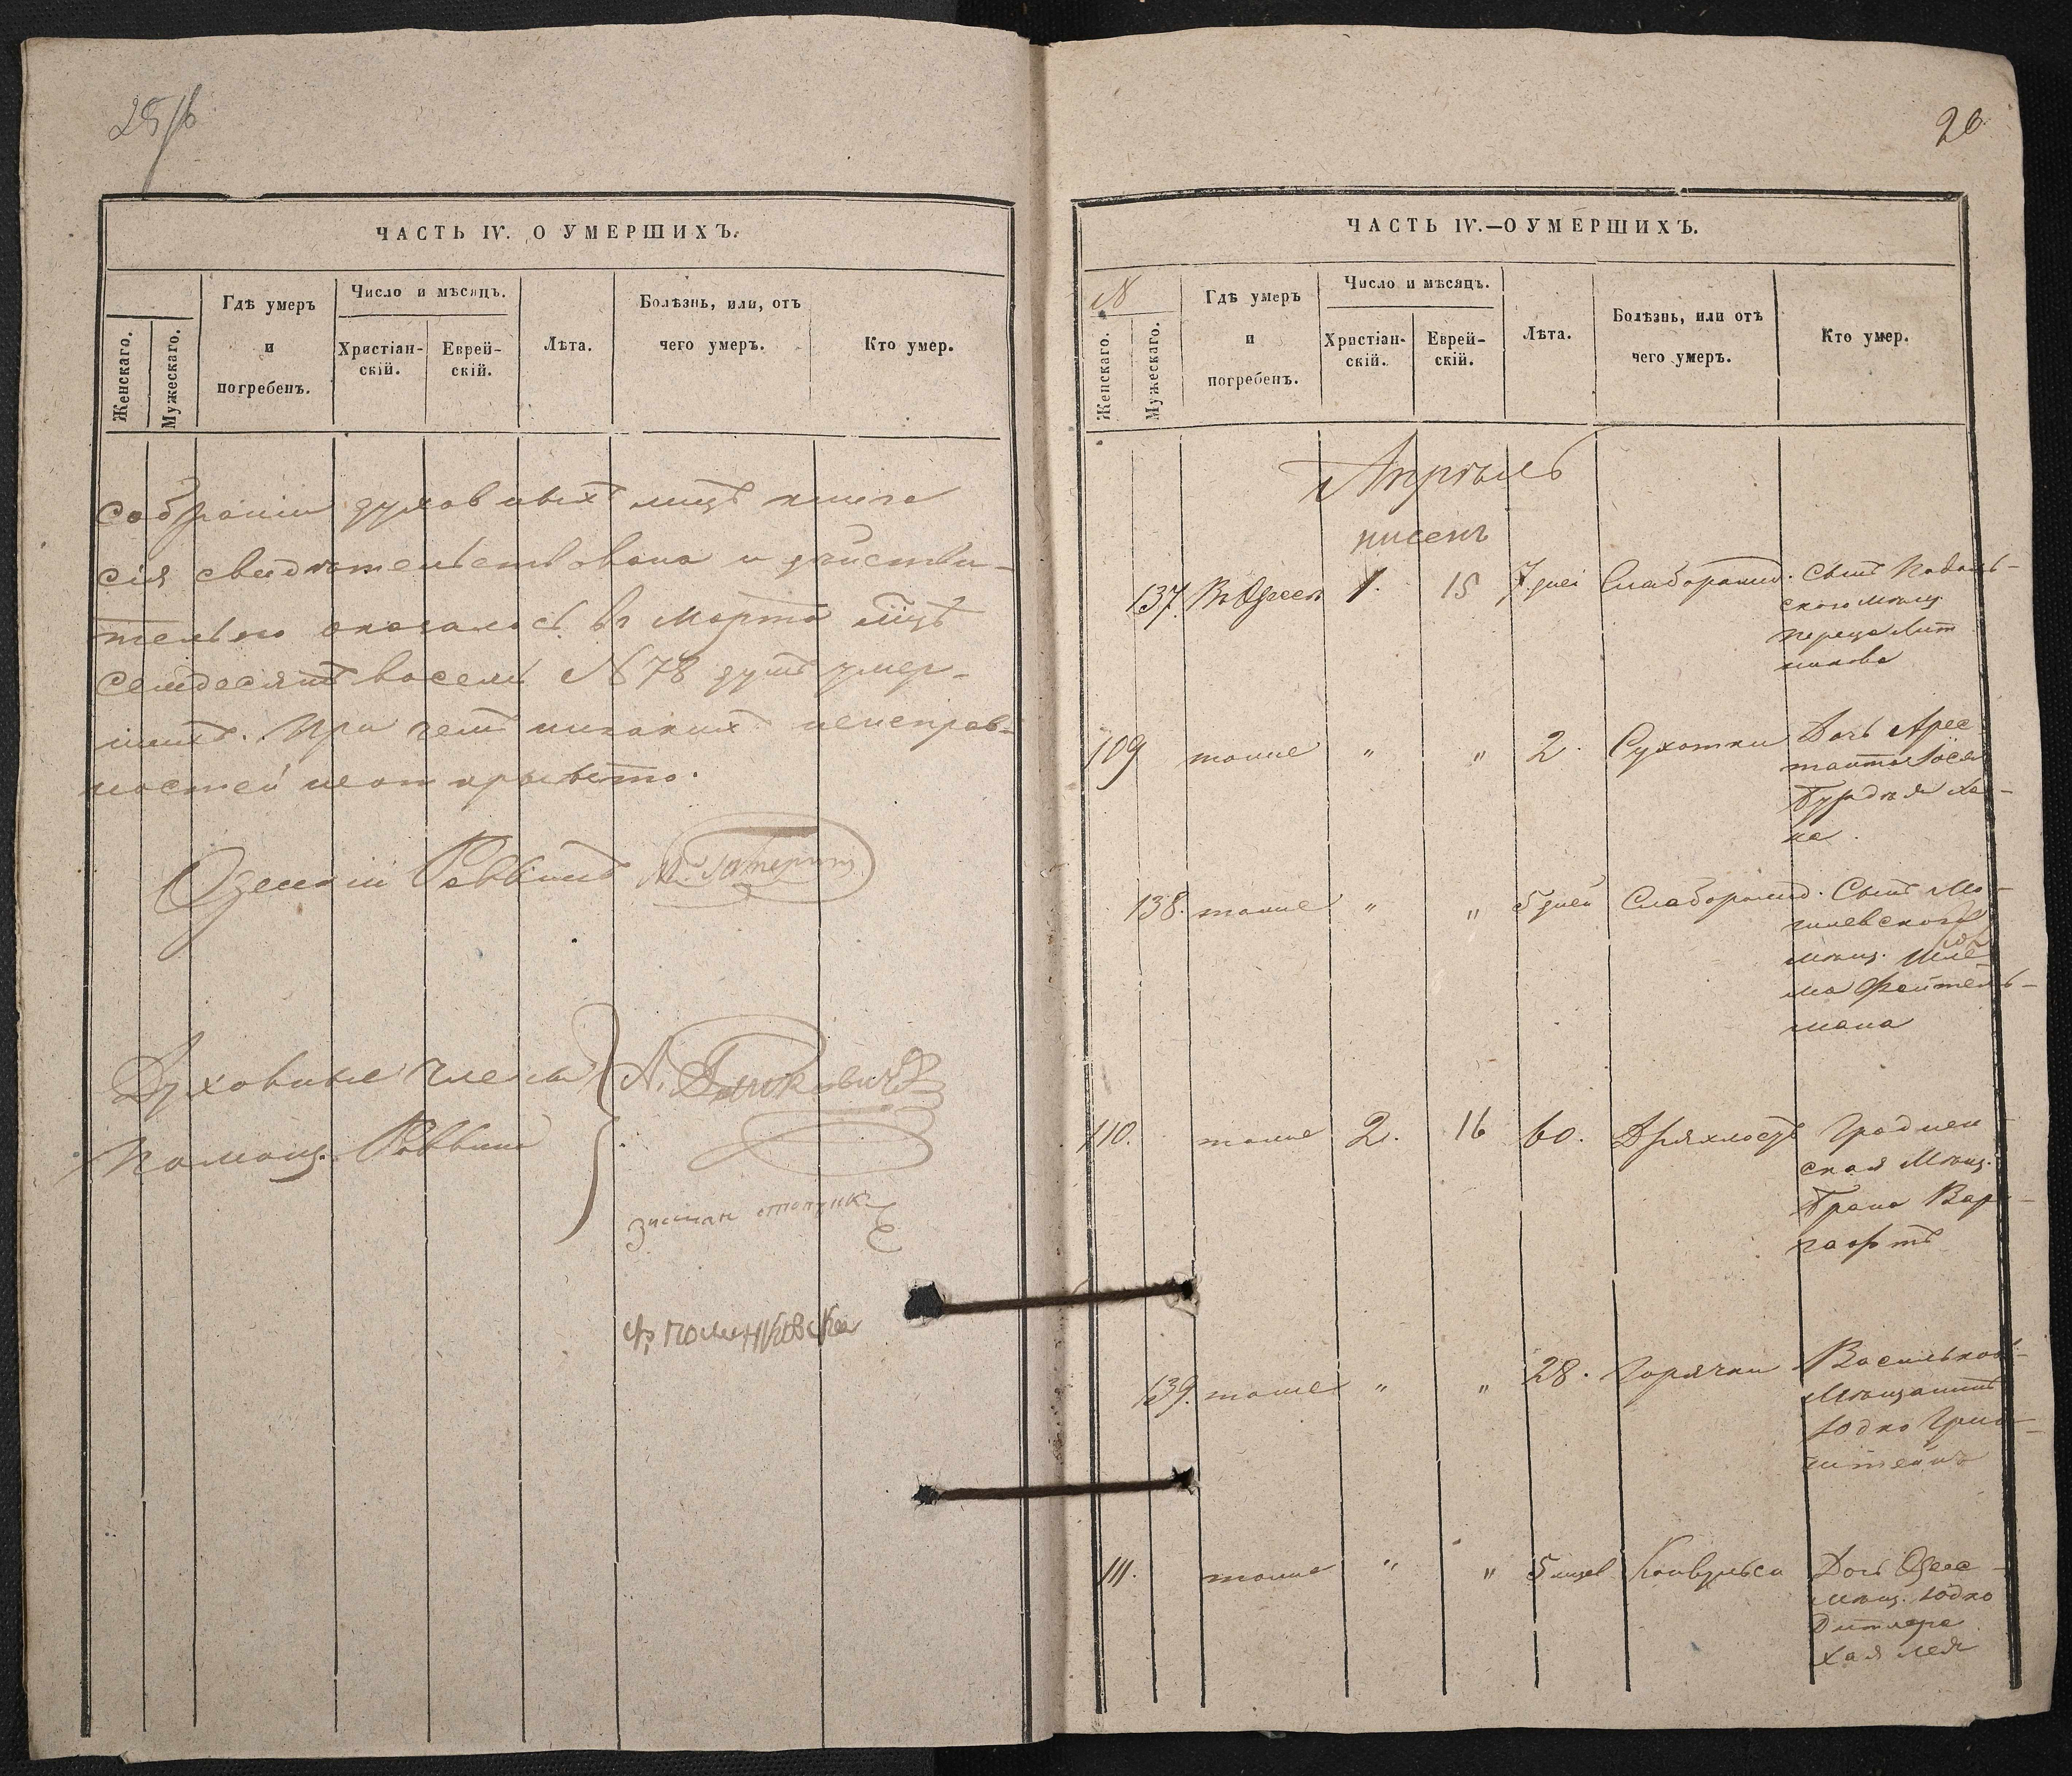 25/б
ЧАСТЬ IV. О УМЕРШИХЪ.
Женскаго.
Мужескаго.
Гдѣ умеръ
и
погребенъ.
Число и мѣсяцъ.
Христіан-
скій.
Еврей-
скій.
Лѣта.
Болѣзнь, или, отъ
чего умеръ.
Кто умер.
Собраніи духовныхъ лицъ книга
сія свидѣтельствована и дѣйстви-
тельно оказалось въ Мартѣ мцѣ
семдесятъ восемь N 78 душъ умер-
шихъ. При чемъ никакихъ неисправ-
ностей не открыто.
Одесскій Раввинъ
Духовные члены
Помощ. Раввина
А.
зисман
26
ЧАСТЬ IV.—О УМЕРШИХЪ.
N
Женскаго.
Мужескаго.
Гдѣ умеръ
и
погребенъ.
Число и мѣсяцъ.
Христіан-
скій.
Еврей-
скій.
Лѣта.
Болѣзнь, или отъ
чего умеръ.
Кто умер.
Апрѣль
нисенъ
137. Въ Одессѣ 1. 15 7 дней Слаборожд. Сынъ Подоль-
скаго мѣщ.
Переца Лит
никова
109 тоже " " 2. Сухотки Дочь Арес
танта Іося
Бурдъя Ха-
на.
138. тоже " " 5 дней Слаборожд. Сынъ Мо-
гилевского
мѣщ. Шлё-
ма Фейтель-
мана
110. тоже 2. 16 60. Дряхлость Гроднен
ская Мѣщ.
Брана Вар-
гафтъ
139. тоже " " 28. Горячки Васильков-
Мѣщанинъ
Юдко Грин-
штейнъ
111. тоже " " 5 мцев Конвульси Дочь Одесс-
мѣщ. Юдко
Дитляра
Хая Лея